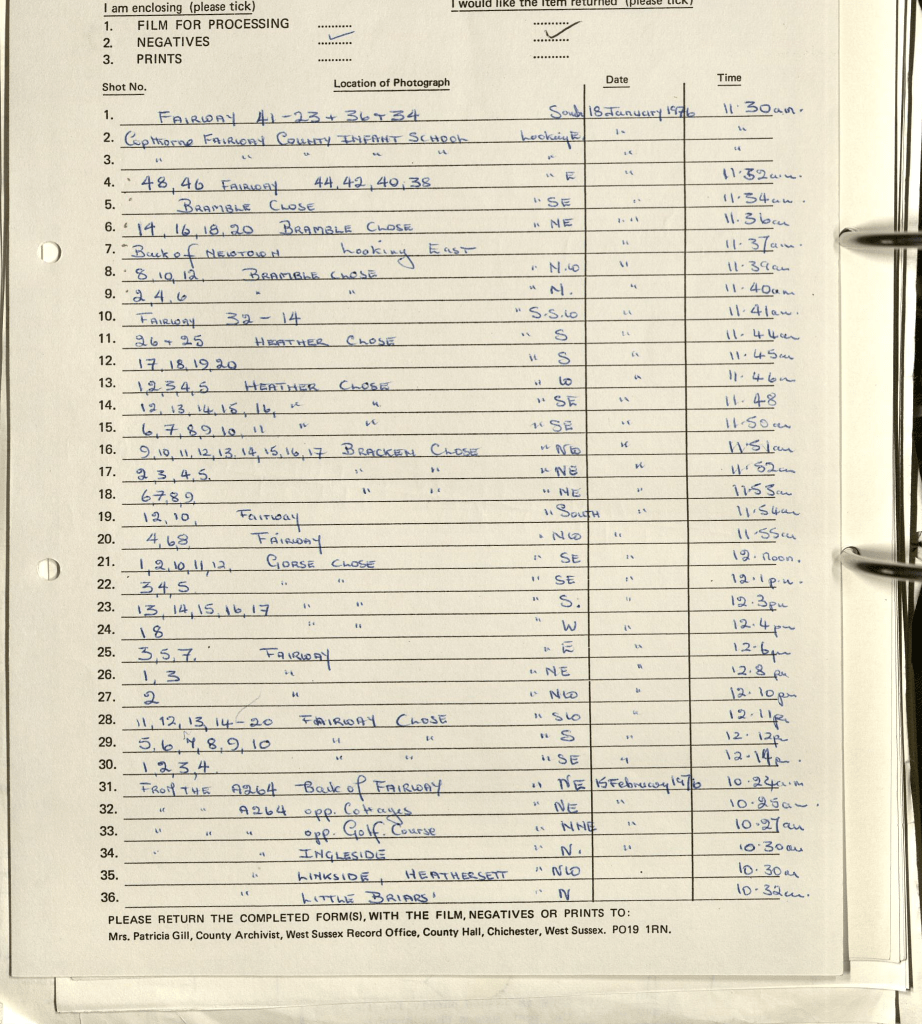 I am enclosing (please tick) I would like the item returned (please tick)
1. FILM FOR PROCESSING ..........
2. NEGATIVES .......... ✓ ✓
3. PRINTS .......... ..........
Shot No. Location of Photograph Date Time
1. FAIRWAY 41-23 + 36+34 South 18 January 1976 11.30am.
2. Copthorne FAIRWAY COUNTY INFANT SCHOOL Looking E " "
3. " " " " " " "
4. 48, 46 FAIRWAY 44, 42, 40, 38 " E " 11.32am.
5. BRAMBLE CLOSE " SE " 11.34am
6. 14, 16, 18, 20 BRAMBLE CLOSE " NE " " 11.36am
7. Back of NEWTOWN Looking East " 11.37am.
8. 8, 10, 12, BRAMBLE CLOSE " N.W " 11.39am
9. 2, 4, 6 " " " N. " 11.40am
10. FAIRWAY 32 - 14 " S.S.W " 11.41am.
11. 26 + 25 HEATHER CLOSE " S " 11.44am
12. 17, 18, 19, 20 " S " 11.45am
13. 1,2,3,4,5 HEATHER CLOSE " W " 11.46am
14. 12, 13, 14, 15, 16, " " " SE " 11.48
15. 6, 7, 8, 9, 10, 11 " " " SE " 11.50am
16. 9, 10, 11, 12, 13, 14, 15, 16, 17 BRACKEN CLOSE " NW " 11.51am
17. 2 3, 4, 5. " " " NE " 11.52am
18. 6 7 8 9 " " " NE " 11.53am
19. 12, 10, FAIRWAY " SOUTH " 11.54am
20. 4, 6, 8 FAIRWAY " NW " 11.55am
21. 1, 2, 10, 11, 12, GORSE CLOSE " SE " 12. Noon.
22. 3, 4, 5 " " " SE " 12.1 p.m.
23. 13, 14, 15, 16, 17 " " " S. " 12.3pm
24. 18 " " " W " 12.4pm
25. 3, 5, 7. FAIRWAY " E " 12.6pm
26. 1, 3 " " NE " 12.8 pm
27. 2 " " NW " 12.10pm
28. 11, 12, 13, 14-20 FAIRWAY CLOSE " SW " 12.11p
29. 5, 6, 7, 8, 9, 10 " " " S " 12.12p
30. 1, 2, 3, 4 " " " SE " 12.14p.
31. FROM THE A264 Back of FAIRWAY " NE 15 February 1976 10.24a.m
32. " " A264 opp. Cottages " NE " 10.25am.
33. " " " opp. Golf. Course " NNE 10.27am
34. " " INGLESIDE " N. " 10.30am
35. " LINKSIDE, HEATHERSETT " NW 10.30am
36. " 'LITTLE BRIARS' " N 10.32am.
PLEASE RETURN THE COMPLETED FORM(S), WITH THE FILM, NEGATIVES OR PRINTS TO:
Mrs. Patricia Gill, County Archivist, West Sussex Record Office, County Hall, Chichester, West Sussex. PO19 1RN.